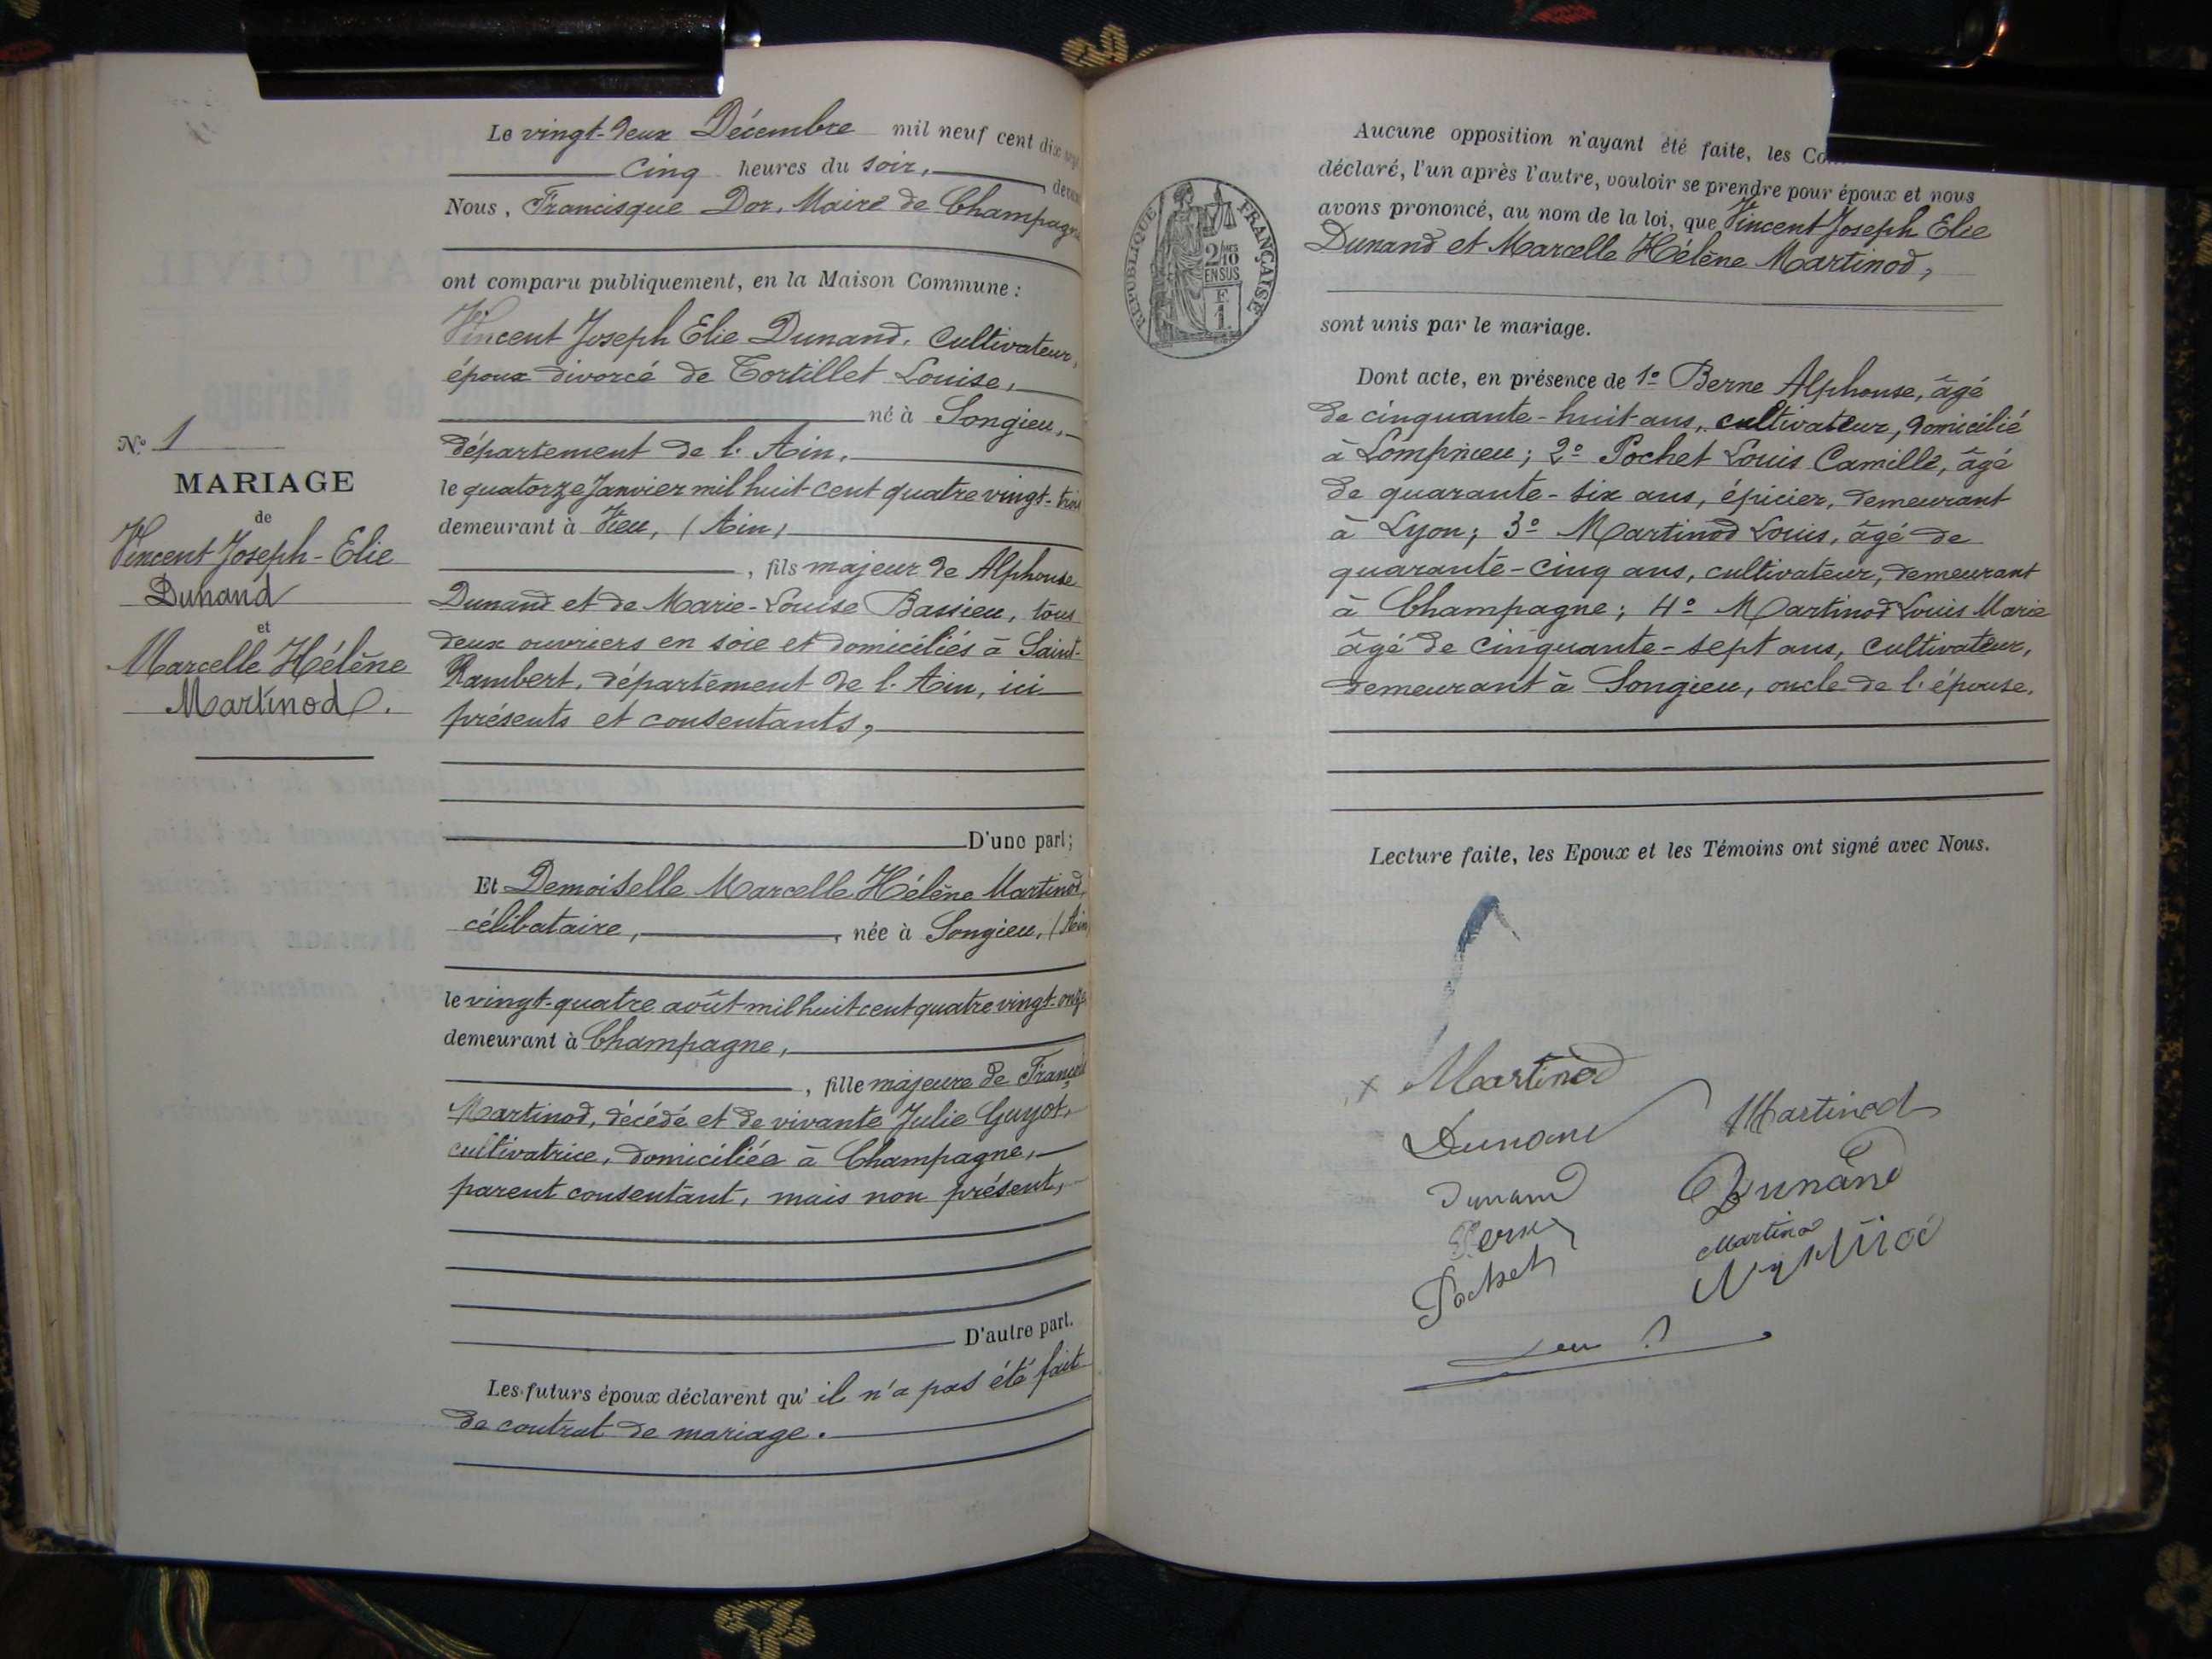 Le vingt-deux Décembre mil neuf cent dix sept
Cinq heures du soir, devant
Nous, Francisque Dor, Maire de Champagne
ont comparu publiquement, en la Maison Commune :
Vincent Joseph Elie Dunand, Cultivateur,
époux divorcé de Tortillet Louise,
né à Songieu,
département de l'Ain,
le quatorze Janvier mil huit-cent quatre vingt-trois
demeurant à Vieu, (Ain)
, fils majeur de Alphonse
Dunand et de Marie-Louise Bassieu, tous
deux ouvriers en soie et domiciliés à Saint-
Rambert, département de l'Ain, ici
présents et consentants,
D'une part;
Et Demoiselle Marcelle Hélène Martinod,
célibataire, , née à Songieu, (Ain)
le vingt-quatre août mil huit cent quatre vingt-onze
demeurant à Champagne,
, fille majeure de François
Martinod, décédé et de vivante Julie Guyot,
cultivatrice, domiciliée à Champagne,
parent consentant, mais non présent,
D'autre part.
Les futurs époux déclarent qu'il n'a pas été fait
de contrat de mariage.
N° 1
MARIAGE
de
Vincent Joseph-Elie
Dunand
et
Marcelle Hélène
Martinod.
Aucune opposition n'ayant été faite, les
déclaré, l'un après l'autre, vouloir se prendre pour époux et nous
avons prononcé, au nom de la loi, que Vincent Joseph Elie
Dunand et Marcelle Hélène Martinod,
sont unis par le mariage.
Dont acte, en présence de 1° Berne Alphonse, âgé
de cinquante-huit ans, cultivateur, domicilié
à Lompnieu; 2° Pochet Louis Camille, âgé
de quarante-six ans, épicier, demeurant
à Lyon; 3° Martinod Louis, âgé de
quarante-cinq ans, cultivateur, demeurant
à Champagne; 4° Martinod Louis Marie
âgé de cinquante-sept ans, cultivateur,
demeurant à Songieu, oncle de l'épouse.
Lecture faite, les Epoux et les Témoins ont signé avec Nous.
RÉPUBLIQUE FRANÇAISE
2/10
EN SUS
F
1
x Martinod
Dunand
Martinod
Dunand
Dunand
Berne
Martinod
Pochet